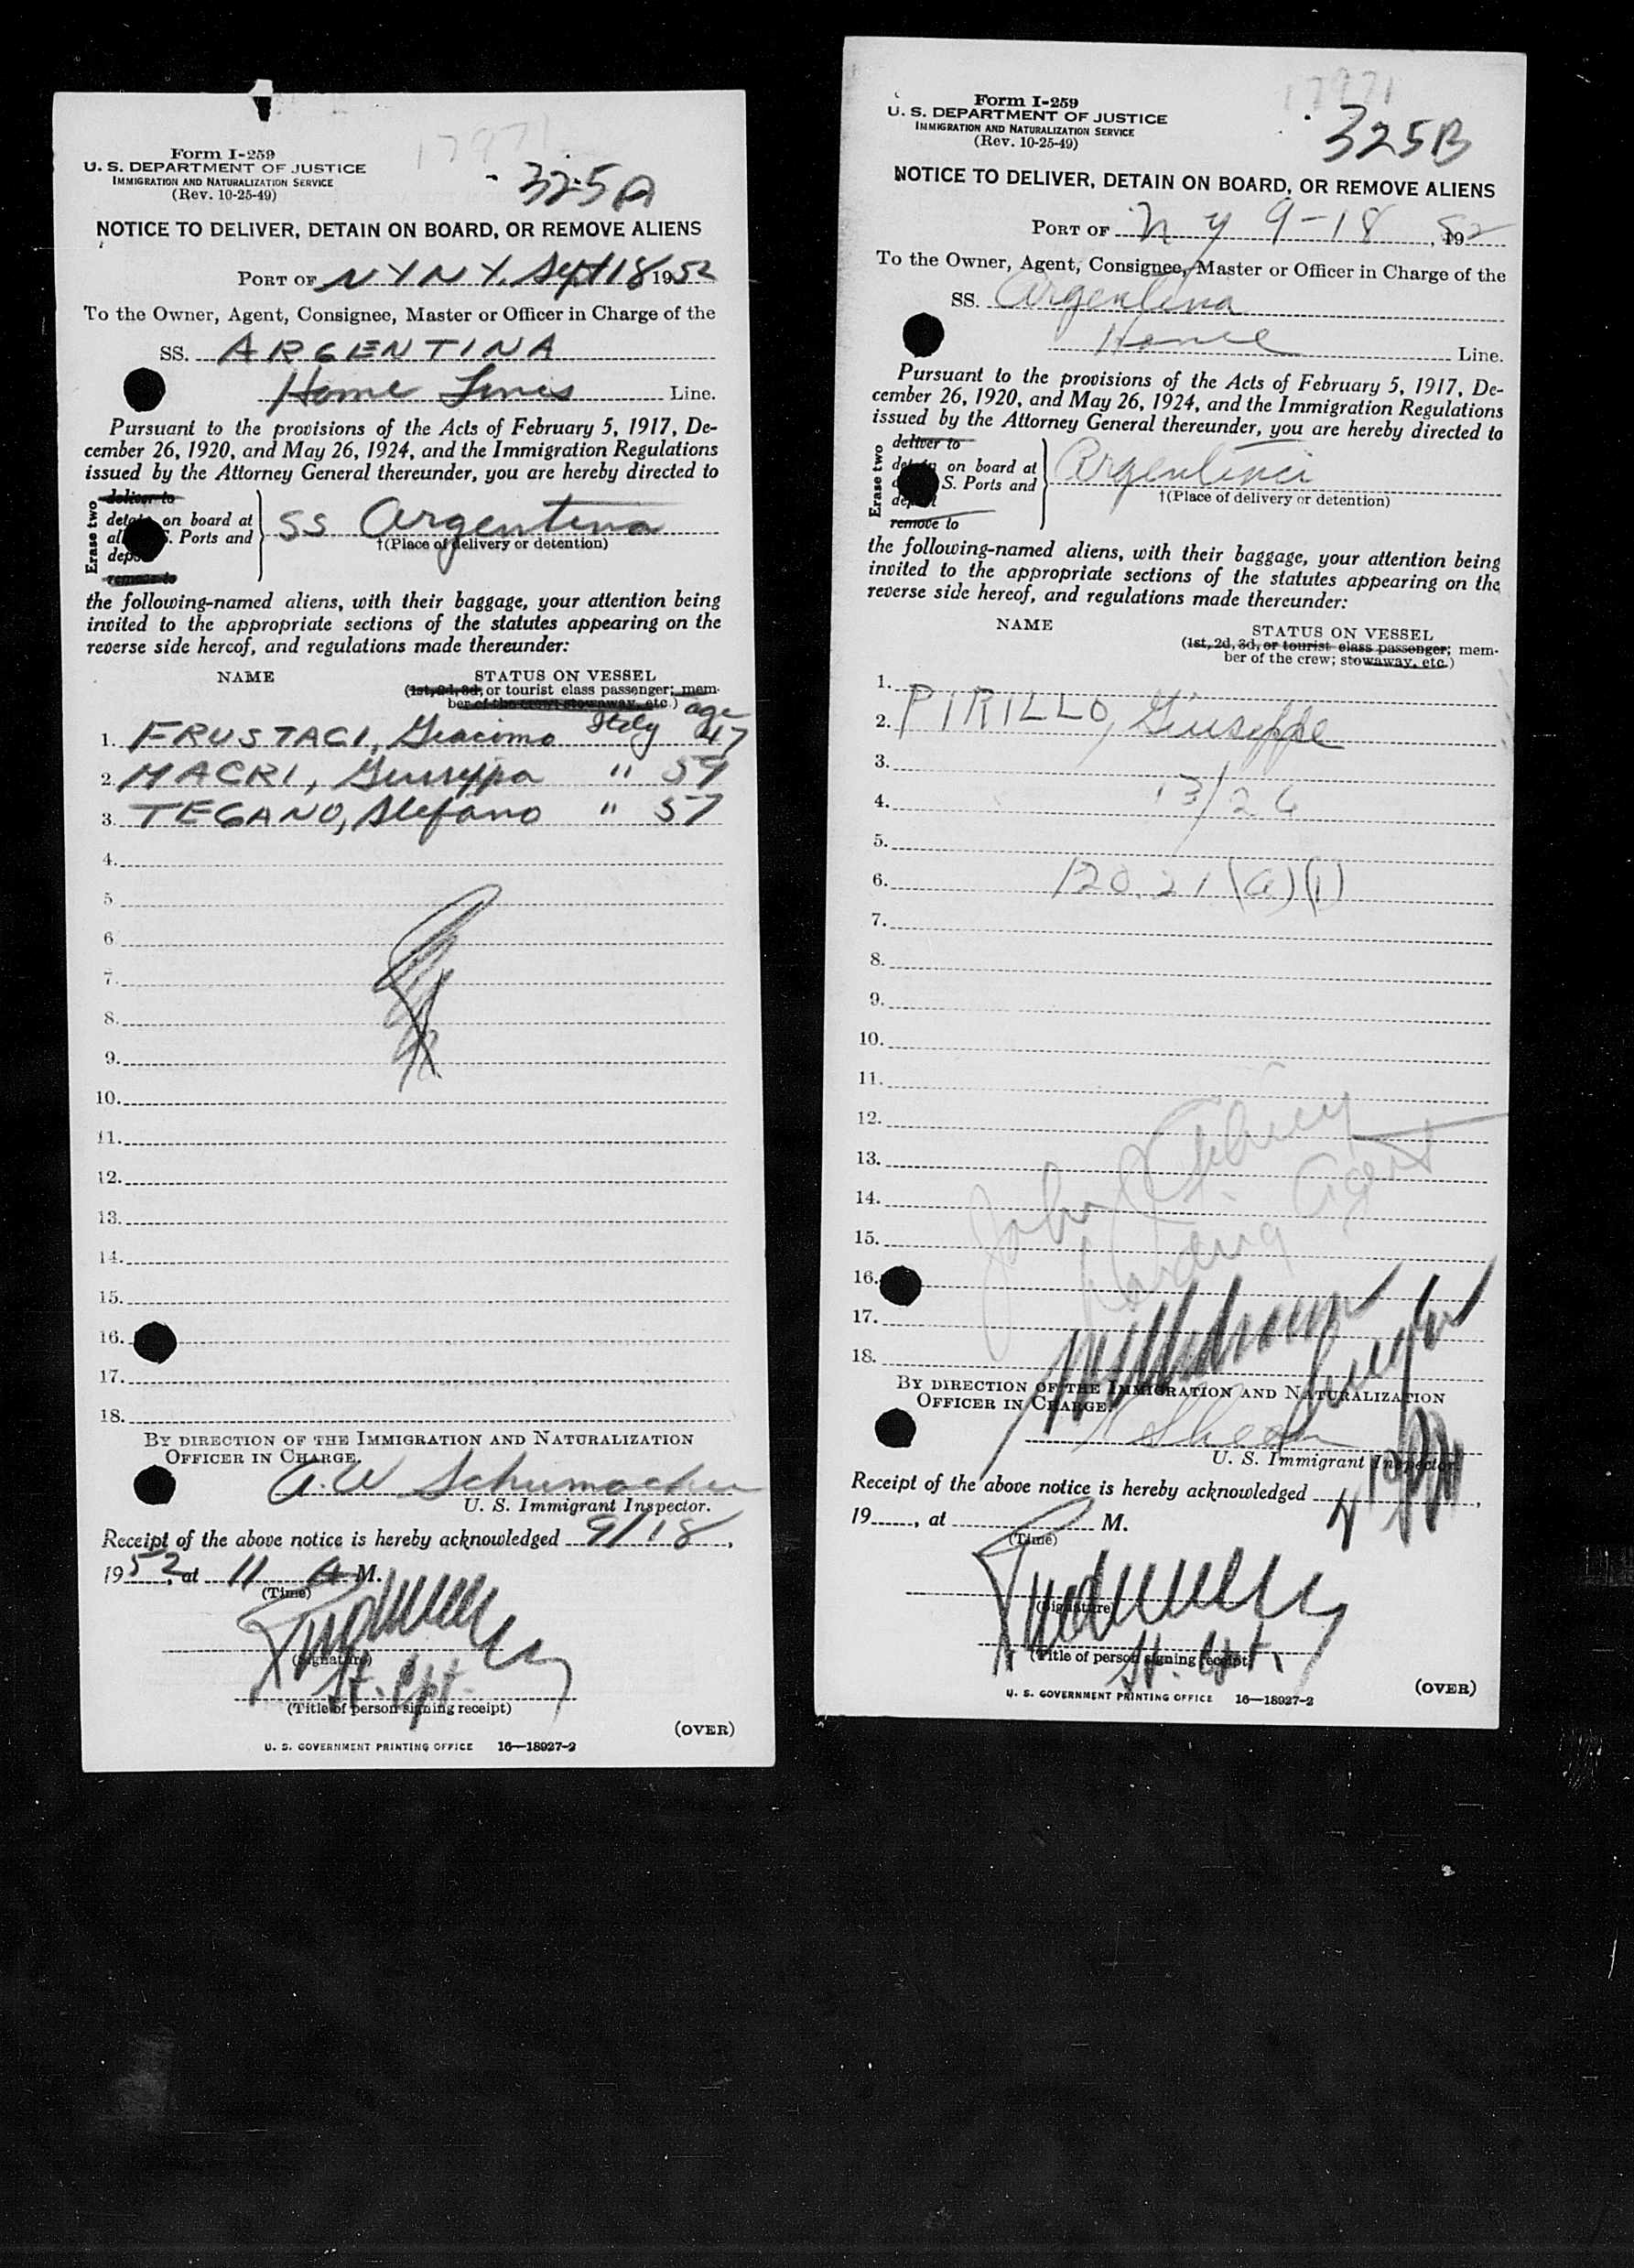 17971
325A
Form I-259
U. S. DEPARTMENT OF JUSTICE
IMMIGRATION AND NATURALIZATION SERVICE
(Rev. 10-25-49)
NOTICE TO DELIVER, DETAIN ON BOARD, OR REMOVE ALIENS
PORT OF N Y N Y. Sept 18 1952
To the Owner, Agent, Consignee, Master or Officer in Charge of the
SS. ARGENTINA
Home Lines Line.
Pursuant to the provisions of the Acts of February 5, 1917, De-
cember 26, 1920, and May 26, 1924, and the Immigration Regulations
issued by the Attorney General thereunder, you are hereby directed to
Erase two
deliver to
on board at
Ports and
remove to
SS Argentina
†(Place of delivery or detention)
the following-named aliens, with their baggage, your attention being
invited to the appropriate sections of the statutes appearing on the
reverse side hereof, and regulations made thereunder:
NAME STATUS ON VESSEL
(1st, 2d, 3d, or tourist class passenger; mem-
ber of the crew; stowaway, etc.) age
1. FRUSTACI, Giacimo Italy 47
2. MACRI, Giuseppa "
3. TEGANO, Stefano " 57
4.
5
6
7.
8.
9.
10.
11.
12.
13.
14.
15.
16.
17.
18.
BY DIRECTION OF THE IMMIGRATION AND NATURALIZATION
OFFICER IN CHARGE.
A. W Schumacher
U. S. Immigrant Inspector.
Receipt of the above notice is hereby acknowledged 9/18,
1952, at 11 A M.
(Time)
(Signature)
(Title of person signing receipt)
(OVER)
U. S. GOVERNMENT PRINTING OFFICE 16—18927-2
17971
325B
Form I-259
U. S. DEPARTMENT OF JUSTICE
IMMIGRATION AND NATURALIZATION SERVICE
(Rev. 10-25-49)
NOTICE TO DELIVER, DETAIN ON BOARD, OR REMOVE ALIENS
PORT OF N Y 9-18, 1952
To the Owner, Agent, Consignee, Master or Officer in Charge of the
SS. Argentina
Home Line.
Pursuant to the provisions of the Acts of February 5, 1917, De-
cember 26, 1920, and May 26, 1924, and the Immigration Regulations
issued by the Attorney General thereunder, you are hereby directed to
Erase two
deliver to
on board at
S. Ports and
remove to
Argentina
†(Place of delivery or detention)
the following-named aliens, with their baggage, your attention being
invited to the appropriate sections of the statutes appearing on the
reverse side hereof, and regulations made thereunder:
NAME STATUS ON VESSEL
(1st, 2d, 3d, or tourist class passenger; mem-
ber of the crew; stowaway, etc.)
1.
2. PIRILLO, Giuseppe
3.
4. 13/26
5.
6. 120.21 (a)(1)
7.
8.
9.
10.
11.
12.
13.
14.
15.
16.
17.
18.
John
Agent
BY DIRECTION OF THE IMMIGRATION AND NATURALIZATION
OFFICER IN CHARGE.
U. S. Immigrant Inspector.
Receipt of the above notice is hereby acknowledged
19, at M.
(Time)
(Signature)
(Title of person signing receipt)
(OVER)
U. S. GOVERNMENT PRINTING OFFICE 16—18927-2